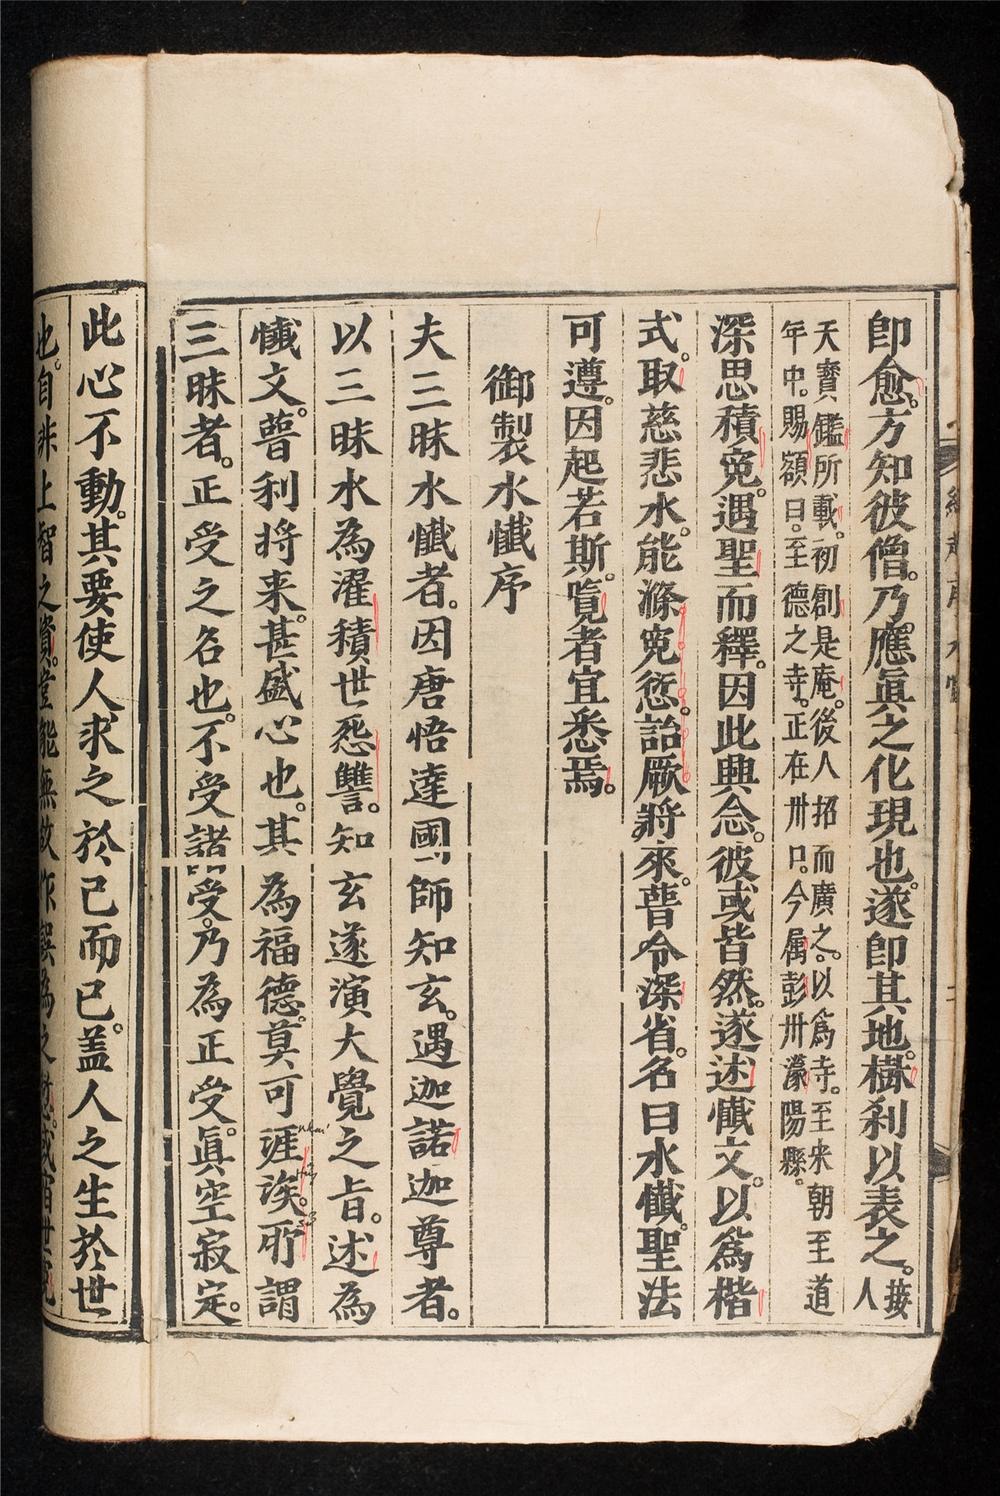 即愈。方知彼僧。乃應眞之化現也。遂即其地。樹刹以表之。按人
天寶鑑所載。初創是庵。後人招而廣之。以爲寺。至宋朝至道
年中。賜額曰。至德之寺。正在州口。今属彭州濛陽縣。
深思積寃。遇聖而釋。因此興念。彼或皆然。遂述懺文。以爲楷
式。取慈悲水。能滌寃愆。詒厥將來。普令深省。名曰水懺。聖法
可遵。因起若斯。覧者宜悉焉。
御製水懺序
夫三昧水懺者。因唐悟達國師知玄。遇迦諾迦尊者。
以三昧水為濯積世怨讐。知玄遂演大覺之旨。述為
懺文。普利將来。甚盛心也。其為福德。莫可涯涘。所謂
三昧者。正受之名也。不受諸受。乃為正受。眞空寂定。
此心不動。其要使人求之於己而已。盖人之生於世
也。自非上智之資。豈能無故作誤為之愆。或宿世冤